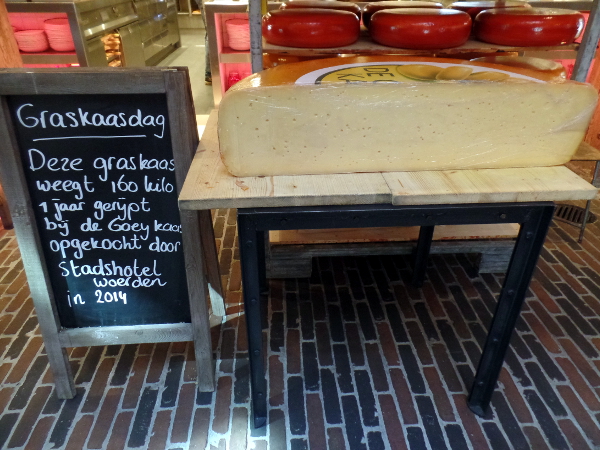 Graskaasdag
Deze graskaas
weegt 160 kilo
1 jaar gerijpt
bij de Goey kaas
opgekocht door
Stadshotel
woerden
in 2014
DE